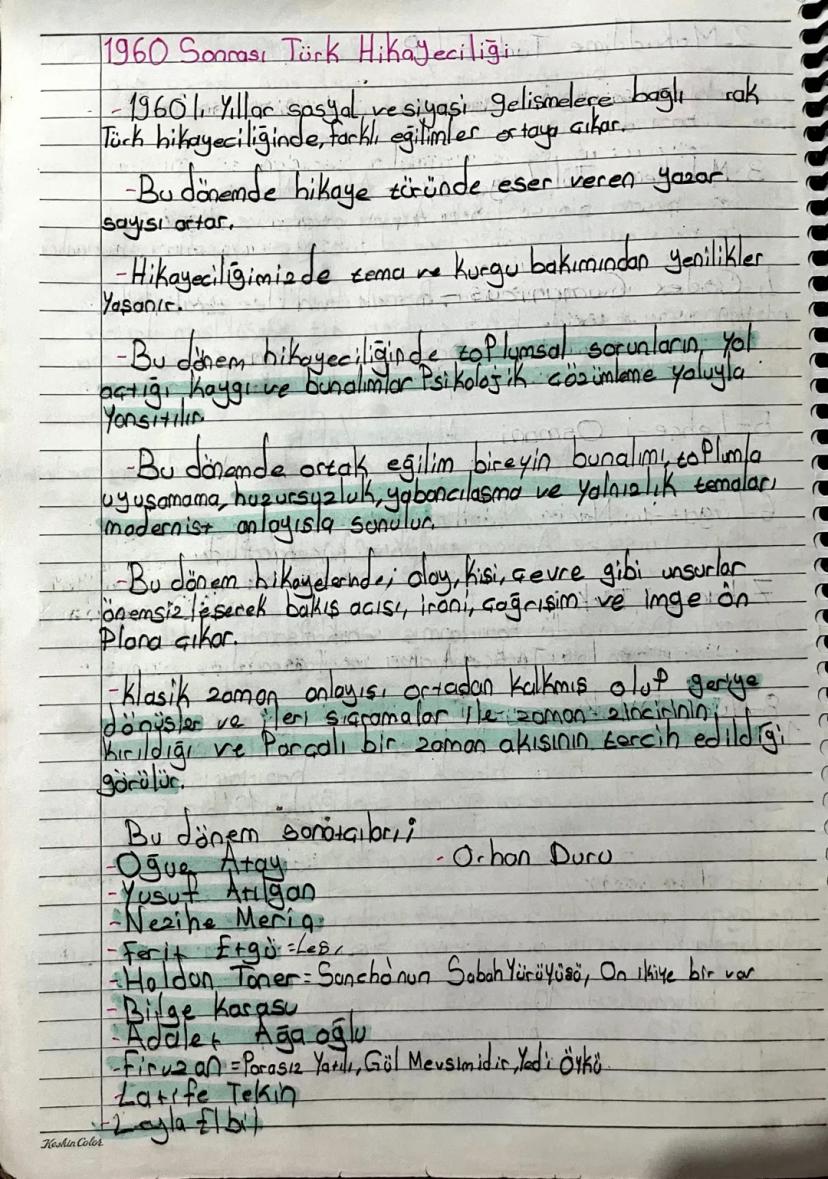 1960 Sonrası Türk Hikayeciliği
- 1960'lı yıllar sosyal ve siyasi gelişmelere bağlı rak
Türk hikayeciliğinde, farklı eğilimler ortaya çıkar.
- Bu dönemde hikaye türünde eser veren yazar
sayısı artar.
- Hikayeciliğimizde tema ve kurgu bakımından yenilikler
Yaşanır.
- Bu dönem hikayeciliğinde toplumsal sorunların yol
açtığı kaygı ve bunalımlar Psikolojik çözümleme yoluyla
Yansıtılır.
- Bu dönemde ortak eğilim bireyin bunalımı, toplumla
uyuşamama, huzursuzluk, yabancılaşma ve yalnızlık temaları
modernist anlayışla sunulur.
- Bu dönem hikayelerinde; olay, kişi, çevre gibi unsurlar
önemsizleşecek bakış açısı, ironi, çağrışım ve imge ön
Plana çıkar.
- Klasik zaman anlayışı ortadan kalkmış olup geriye
dönüşler ve ileri sıçramalar ile zaman zincirinin
kırıldığı ve Parçalı bir zaman akışının tercih edildiği
görülür.
Bu dönem sanatçıları;
- Oğuz Atay
- Orhan Duru
- Yusuf Atılgan
- Nezihe Meriç
- Ferit Etgü =
- Haldun Taner = Sancho'nun Sabah Yürüyüşü, On ikiye bir var
- Bilge Karasu
- Adalet Ağaoğlu
- Firuzan = Parasız Yatılı, Gül Mevsimidir, Yedi Öykü
- Latife Tekin
- Leyla Elbil
Keskin Color